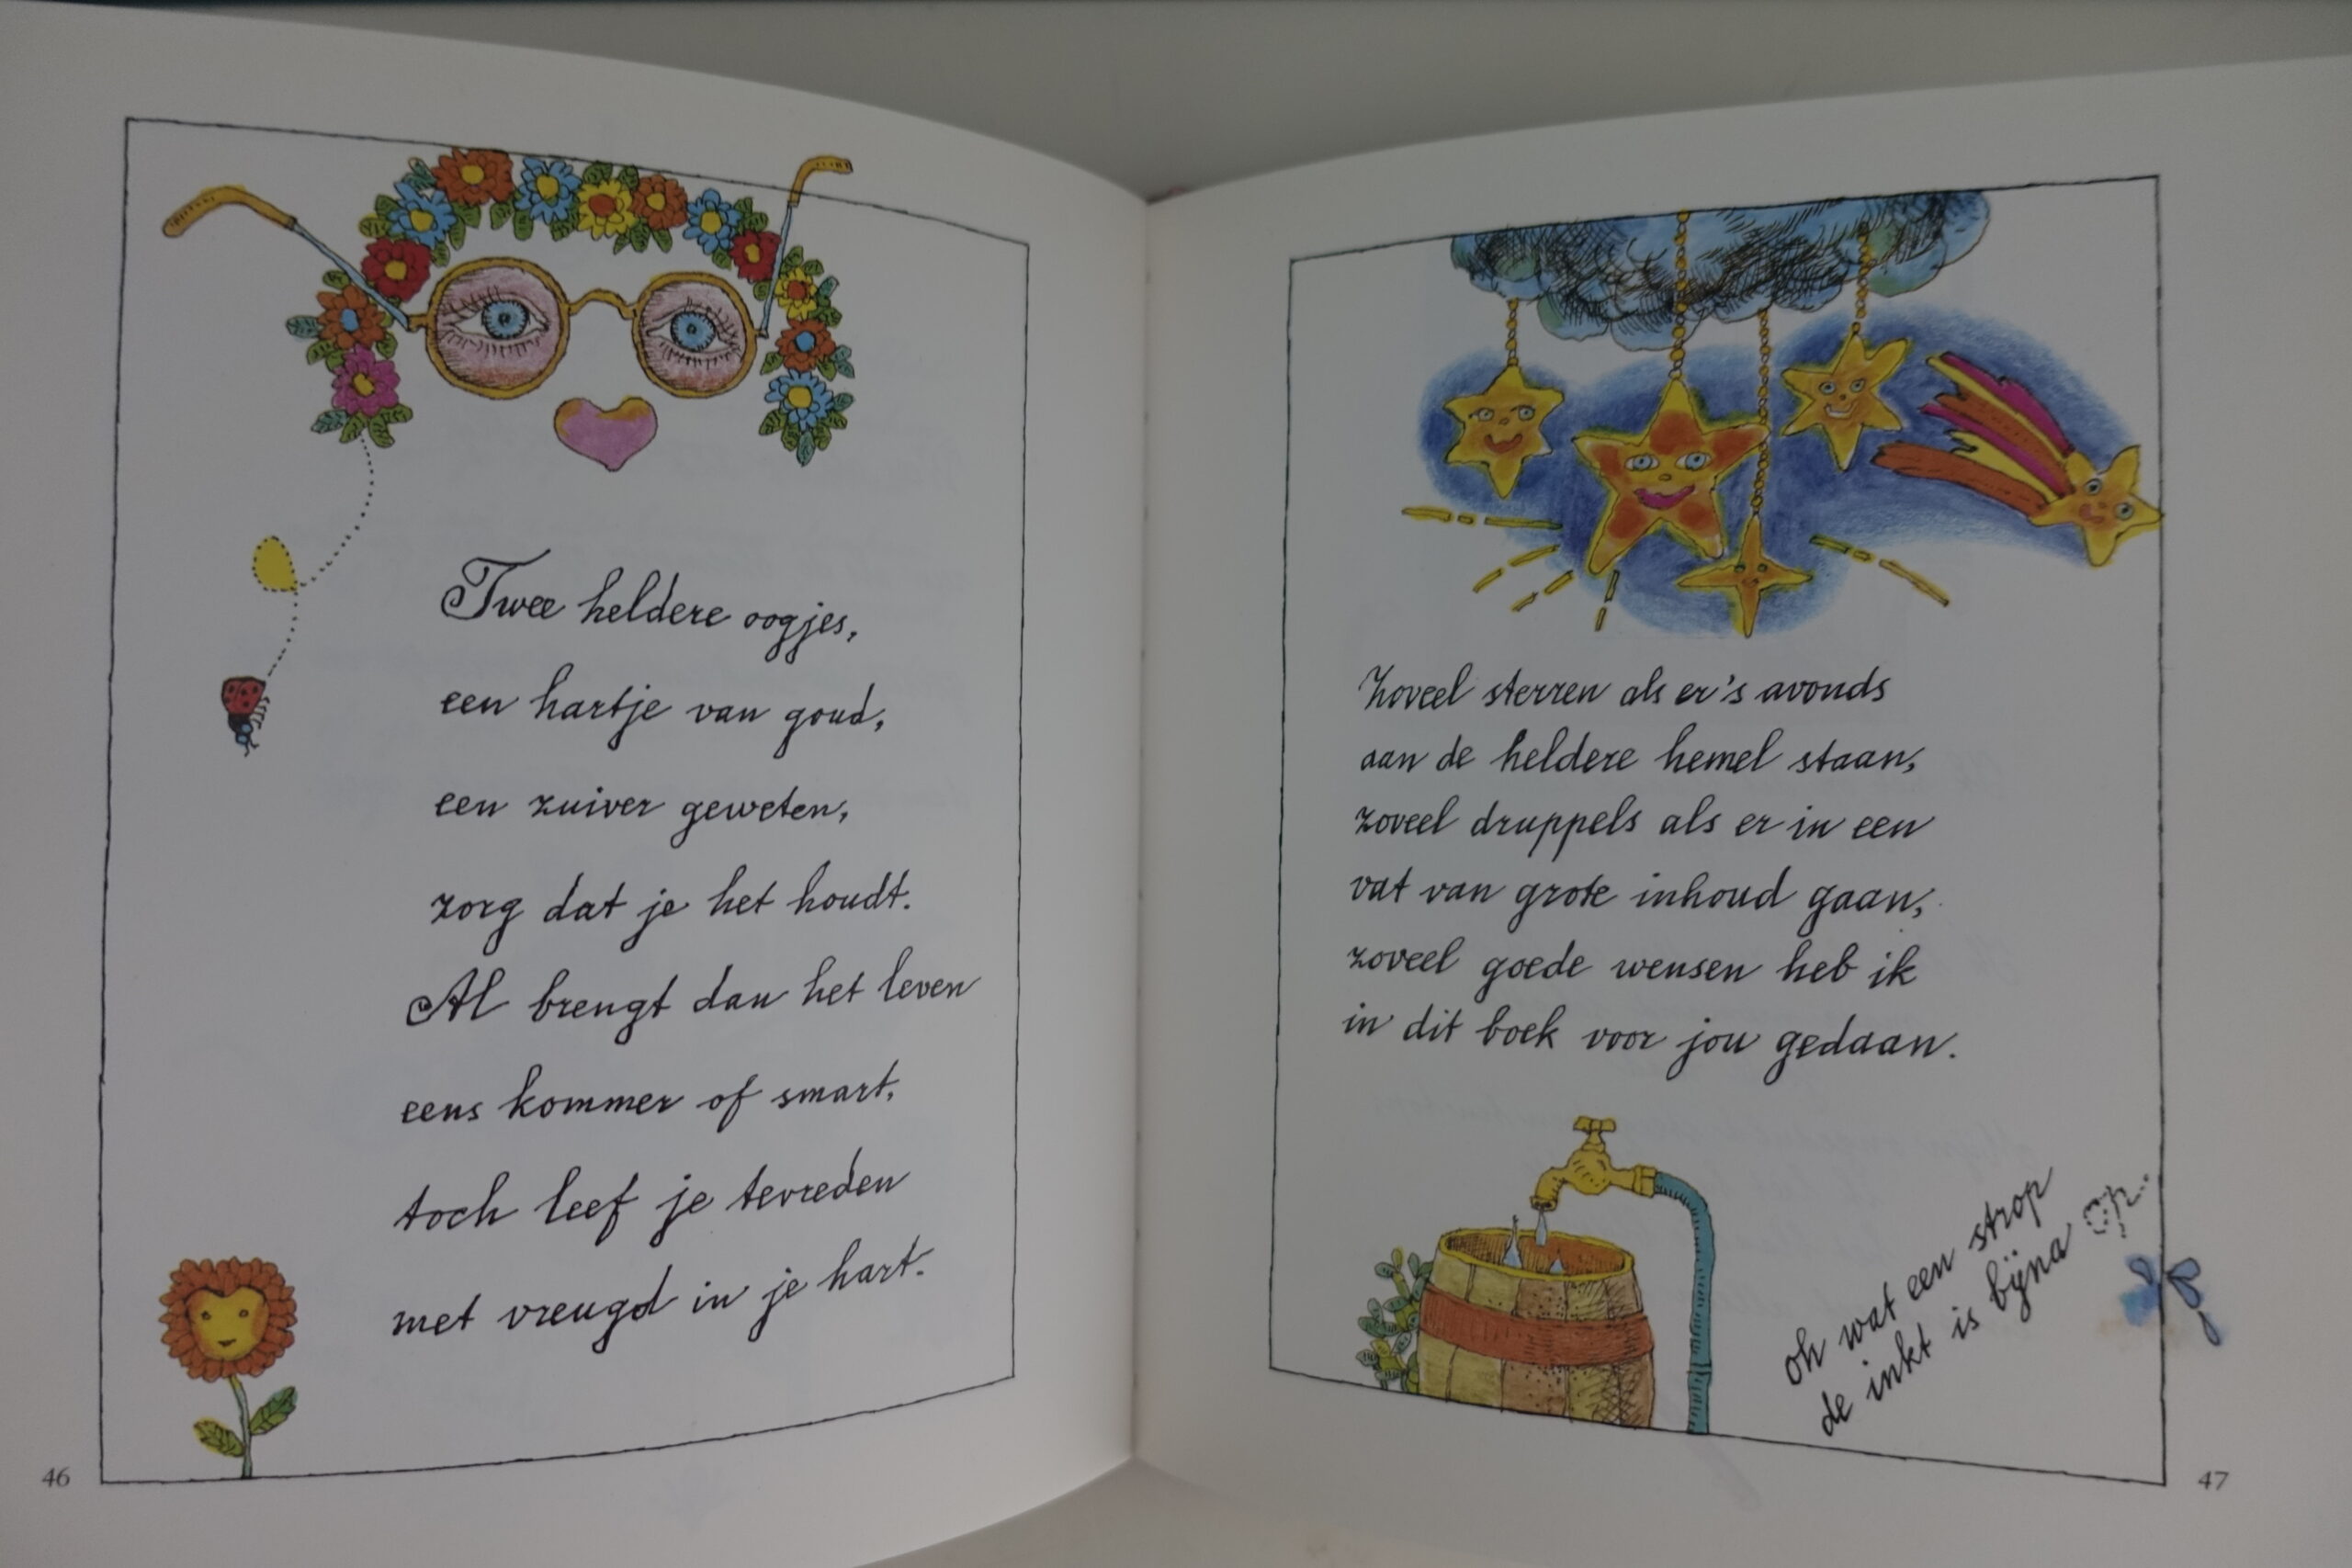 Twee heldere oogjes,
een hartje van goud,
een zuiver geweten,
zorg dat je het houdt.
Al brengt dan het leven
eens kommer of smart,
toch leef je tevreden
met vreugd in je hart.
46
Zoveel sterren als er's avonds
aan de heldere hemel staan,
zoveel druppels als er in een
vat van grote inhoud gaan,
zoveel goede wensen heb ik
in dit boek voor jou gedaan.
oh wat een strop
de inkt is bijna op..
47